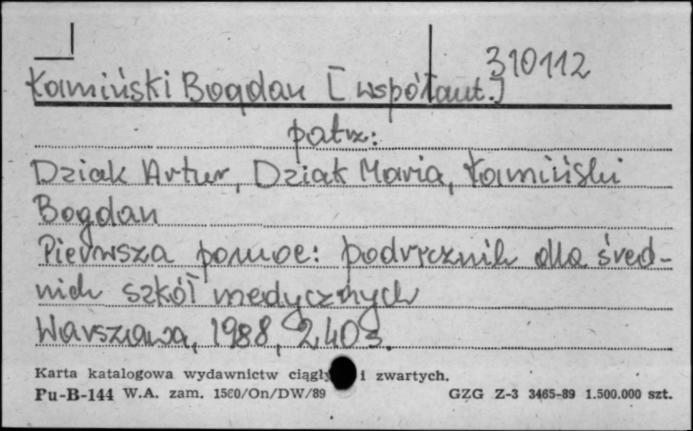 310112
Kamiński Bogdan [współaut.]
patrz:
Dziak Artur, Dziak Maria, Kamiński
Bogdan
Pierwsza pomoc: podręcznik dla śred-
nich szkół medycznych
Warszawa, 1988, 240 s.
Karta katalogowa wydawnictw ciągły i zwartych.
Pu-B-144 W.A. zam. 1500/On/DW/89 GZG Z-3 3465-89 1.500.000 szt.